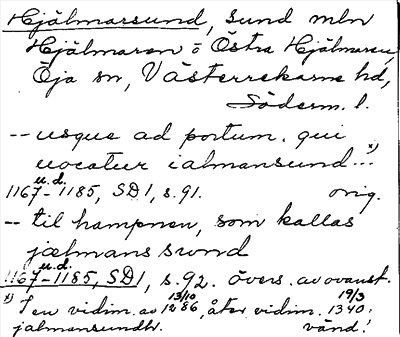 Hjälmarsund, sund mln
Hjälmaren o Östra Hjälmaren,
Öja sn, Västerrekarne hd,
Söderm. l.
-- usque ad portum. qui
uocatur ialmansund...x)
u.d.
1167-1185, SD1, s. 91. orig.
-- til hampnen, som kallas
jælmans swnd
u.d.
1167-1185, SD1, s. 92. övers. av ovanst.
x) I en vidim. av 13/10 1286, åter vidim. 19/3 1340:
jalmansundh. vänd!